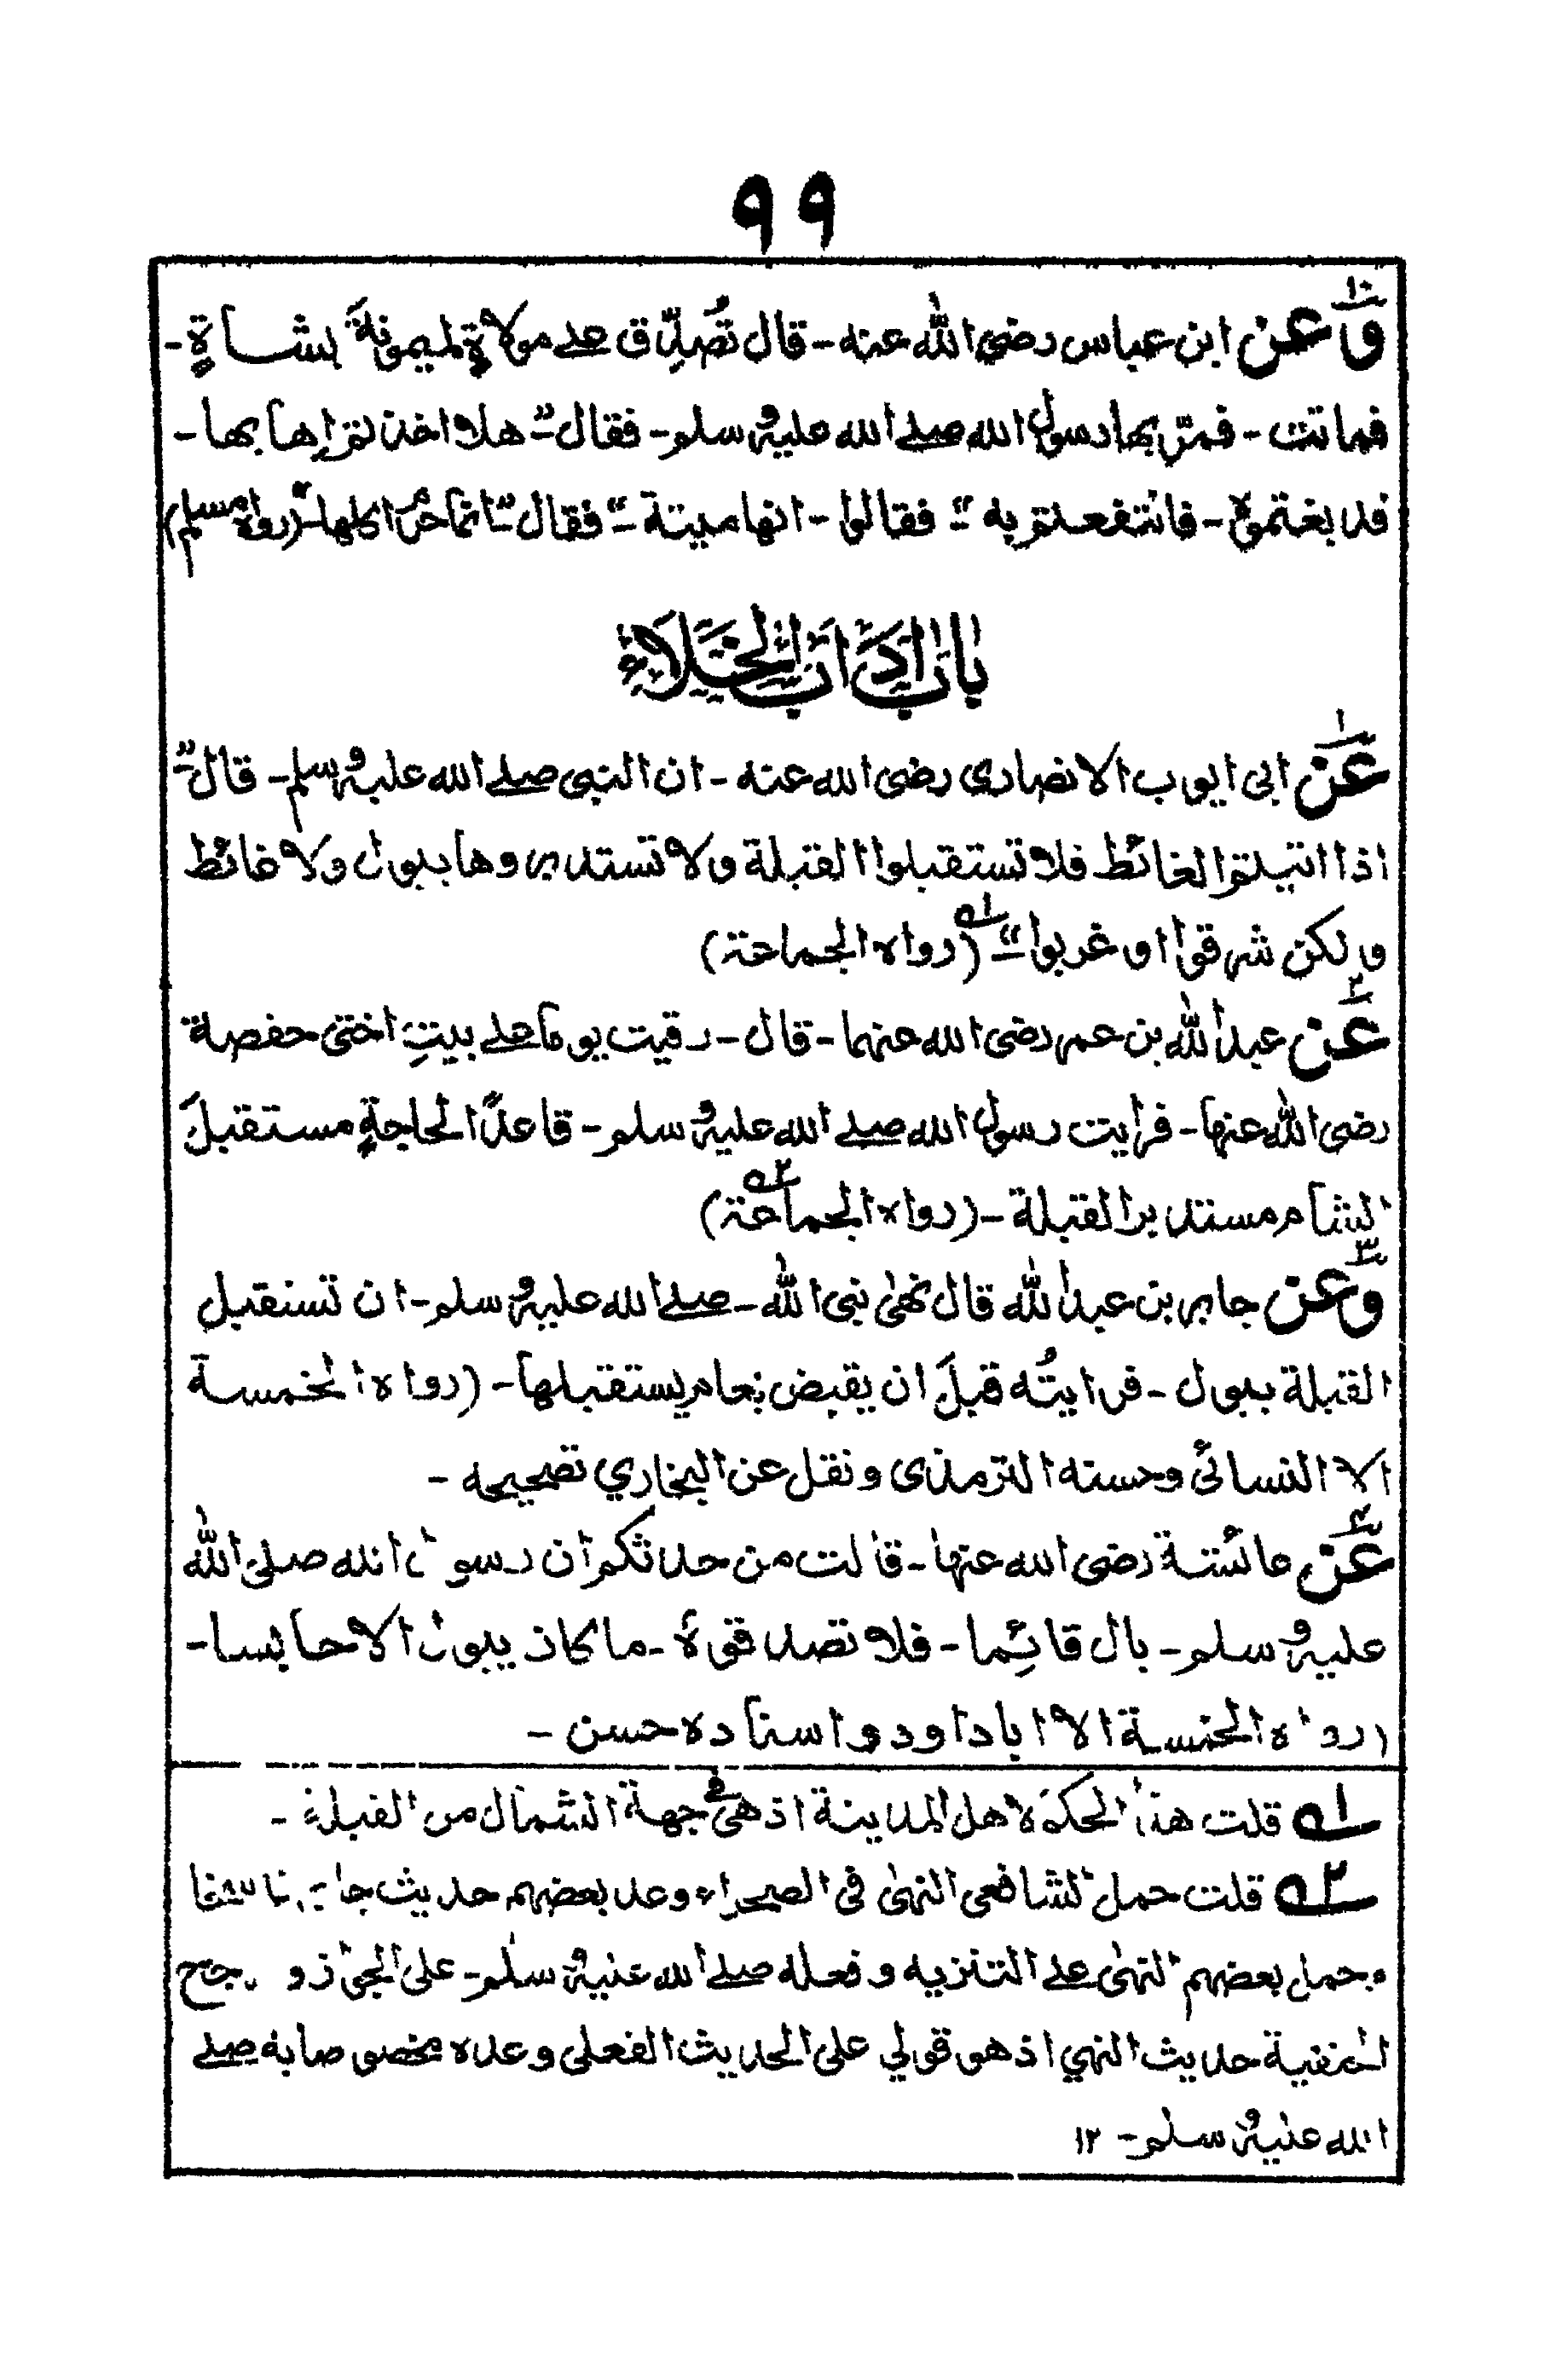 ۹۹
۱۰
وعن ابن عباس رضي الله عنه - قال تُصُدِّق على مولاةٍ لميمونةَ بشاةٍ -
فماتت - فمرّ بها رسول الله صلى الله عليه وسلم - فقال "هلا اخذتم اِهابها -
فدبغتموه - فانتفعتم به" فقالوا - انها ميتة - فقال "انما حرُم اكلها" - (رواه مسلم)
بَابُ اٰدَابِ الْخَلَاءِ
۱
عَنْ ابى ايوب الانصاري رضى الله عنه - ان النبى صلى الله عليه وسلم - قال "
اذا اتيتم الغائط فلا تستقبلوا القبلة ولا تستدبروها ببول ولا غائط
ولكن شرقوا او غربوا" له (رواه الجماعة)
۲
عن عبد الله بن عمر رضى الله عنهما - قال - رقيت يوما على بيتِ اختى حفصة
رضى الله عنها - فرأيت رسول الله صلى الله عليه وسلم - قاعدًا لحاجةٍ مستقبلَ
الشام مستدبر القبلة - (رواه الجماعة) ۲ه
۳
وعن جابر بن عبد الله قال نهىٰ نبى الله - صلى الله عليه وسلم - ان تستقبل
القبلة ببول - فرايتُه قبلَ ان يقبض بعام يستقبلها - (رواه الخمسة
الا النسائى وحسنه الترمذى ونقل عن البخاري تصحيحه -
۴
عَنْ عائشة رضى الله عنها - قالت من حدثكم ان رسول الله صلى الله
عليه وسلم - بال قائِما - فلا تصدقوه - ما كان يبول الا جالسا -
(رواه الخمسة الا ابا داود واسناده حسن -
۱ه قلت هذا الحكم لاهل المدينة اذ هى فى جهة الشمال من القبلة -
۲ه قلت حمل الشافعى النهى فى الصحراء وعد بعضهم حديث جابر ناسخا
وحمل بعضهم النهى على التنزيه وفعله صلى الله عليه وسلم - على الجواز ورجح
الحنفية حديث النهي اذ هو قولي على الحديث الفعلى وعدوه مخصوصا به صلى
الله عليه وسلم - ۱۲